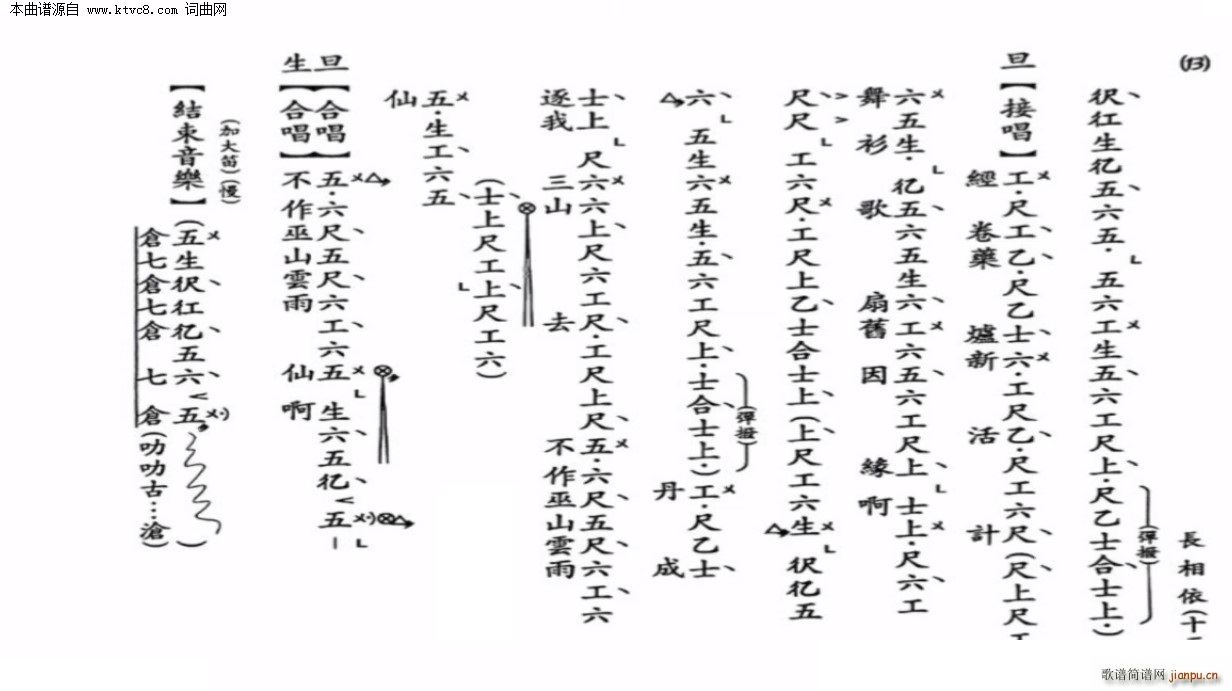 本曲谱源自 www.ktvc8.com 词曲网
(13)
長相依(十
彳尺彳工生亿五六五·五六工生五六工尺上·尺乙士合士上·)
(彈撥)
旦【接唱】工·尺工乙·尺乙士六·工尺乙·尺工六尺(尺上尺工
經卷藥爐新活計
六五生·亿五六五生六工六五六工尺上士上·尺六工
舞衫歌扇舊因緣啊
尺尺工六尺·工尺上乙士合士上(上尺工六生彳尺亿五
六五生六五生·五六工尺上·士合士上·)工·尺乙士
(彈撥)
丹成
士上尺六六上尺六工尺·工尺上尺五·六尺五尺六工六
逐我三山去不作巫山雲雨
(士上尺工上尺工六)
五·生工六五
仙
旦【合唱】五·六尺五尺六工六五生六五亿五
生【合唱】不作巫山雲雨仙啊
(加大笛)(慢)
【結束音樂】(五生彳尺彳工亿五六五)
倉七倉七倉七倉(叻叻古…滄)
歌谱简谱网 jianpu.cn